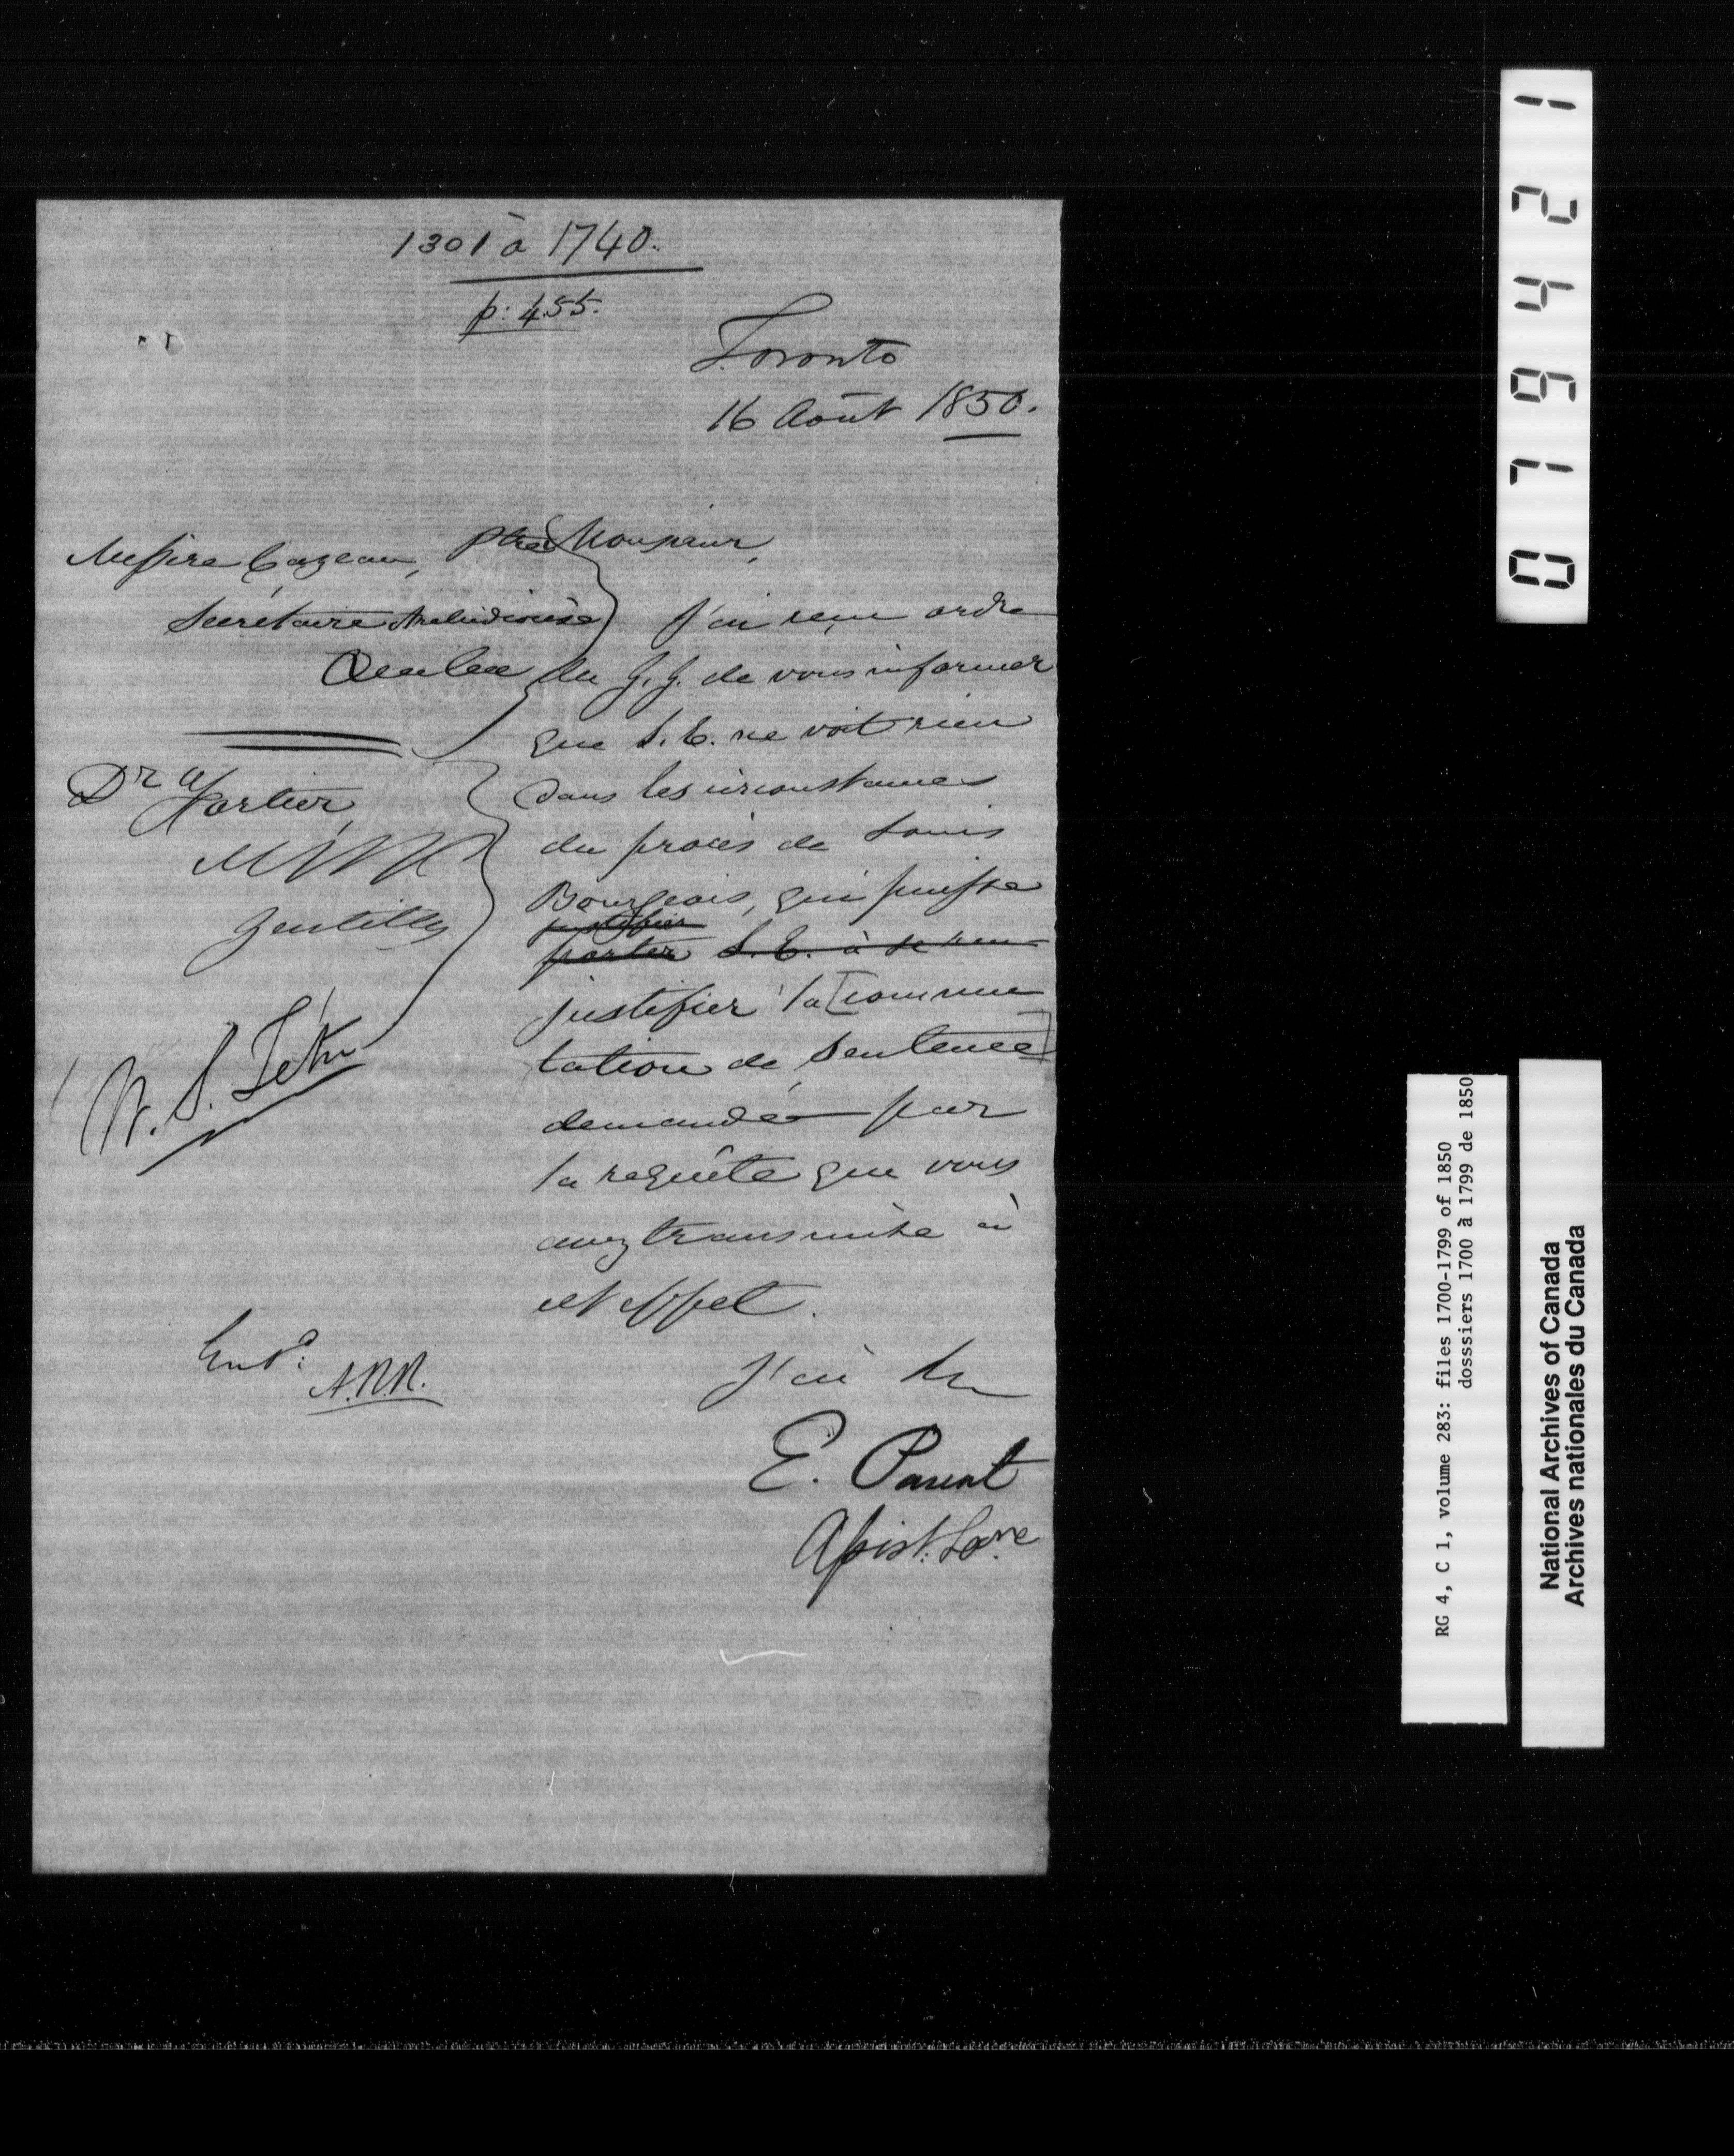 1301 à 1740.
p: 455.
Toronto
16 Août 1850.
Messire Cazeau, Ptre
Secrétaire Archidiocèse
Québec
Dr Fortier,
MPP
Gentilly
Monsieur,
J'ai reçu ordre
du G. G. de vous informer
que S. E. ne voit rien
dans les circonstances
du procès de Louis
Bourgeois, qui puisse
justifier
porter S. E. à se
justifier la [commu
tation de Sentence]
demandée par
la requête que vous
avez transmise à
cet effet.
J'ai
E. Parent
Assist. Secre
Entd:
A.R.R.
0 7 9 4 2 1
RG 4, C 1, volume 283: files 1700-1799 of 1850
dosssiers 1700 à 1799 de 1850
National Archives of Canada
Archives nationales du Canada